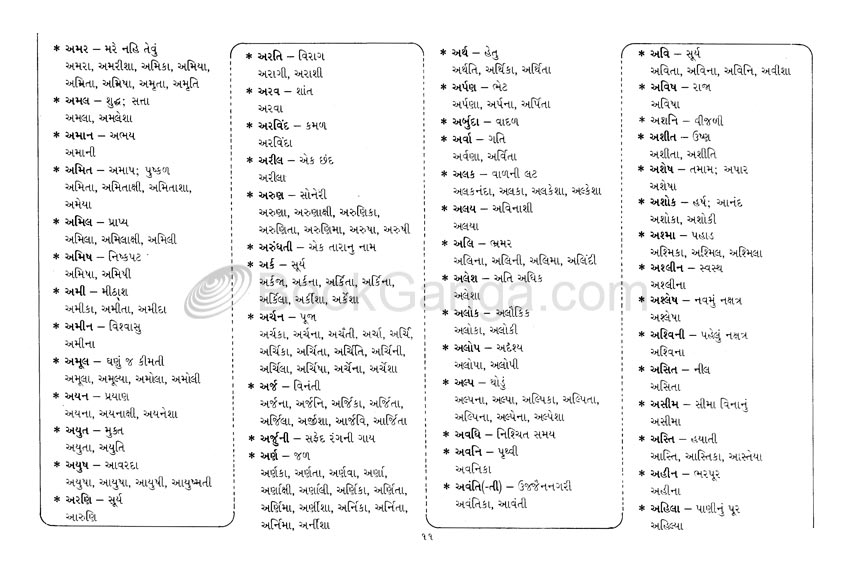 * અમર – મરે નહિ તેવું
અમરા, અમરીશા, અમિકા, અમિયા,
અમ્રિતા, અમ્રિષા, અમૃતા, અમૃતિ
* અમલ – શુદ્ધ; સત્તા
અમલા, અમલેશા
* અમાન – અભય
અમાની
* અમિત – અમાપ; પુષ્કળ
અમિતા, અમિતાક્ષી, અમિતાશા,
અમેયા
* અમિલ – પ્રાપ્ય
અમિલા, અમિલાક્ષી, અમિલી
* અમિષ – નિષ્કપટ
અમિષા, અમિષી
* અમી – મીઠાશ
અમીકા, અમીતા, અમીદા
* અમીન – વિશ્વાસુ
અમીના
* અમૂલ – ઘણું જ કીમતી
અમૂલા, અમૂલ્યા, અમોલા, અમોલી
* અયન – પ્રયાણ
અયના, અયનાક્ષી, અયનેશા
* અયુત – મુક્ત
અયુતા, અયુતિ
* અયુષ – આવરદા
અયુષા, આયુષા, આયુષી, આયુષ્મતી
* અરણિ – સૂર્ય
આરુણિ
* અરતિ – વિરાગ
અરાગી, અરાશી
* અરવ – શાંત
અરવા
* અરવિંદ – કમળ
અરવિંદા
* અરીલ – એક છંદ
અરીલા
* અરુણ – સોનેરી
અરુણા, અરુણાક્ષી, અરુણિકા,
અરુણિતા, અરુણિમા, અરુષા, અરુષી
* અરુંધતી – એક તારાનુ નામ
* અર્ક – સૂર્ય
અર્કજા, અર્કના, અર્કિતા, અર્કિના,
અર્કિલા, અર્કીશા, અર્કેશા
* અર્ચન – પૂજા
અર્ચકા, અર્ચના, અર્ચંતી, અર્ચા, અર્ચિ,
અર્ચિકા, અર્ચિતા, અર્ચિતિ, અર્ચિની,
અર્ચિલા, અર્ચિષા, અર્ચેના, અર્ચેશા
* અર્જ – વિનંતી
અર્જના, અર્જનિ, અર્જિકા, અર્જિતા,
અર્જિલા, અર્જીશા, આર્જવિ, આર્જિતા
* અર્જુની – સફેદ રંગની ગાય
* અર્ણ – જળ
અર્ણકા, અર્ણતા, અર્ણવા, અર્ણા,
અર્ણાક્ષી, અર્ણાલી, અર્ણિકા, અર્ણિતા,
અર્ણિમા, અર્ણીશા, અર્નિકા, અર્નિતા,
અર્નિમા, અર્નીશા
* અર્થ – હેતુ
અર્થતિ, અર્થિકા, અર્થિતા
* અર્પણ – ભેટ
અર્પણા, અર્પના, અર્પિતા
* અર્બુદા – વાદળ
* અર્વા – ગતિ
અર્વણા, અર્વિતા
* અલક – વાળની લટ
અલકનંદા, અલકા, અલકેશા, અલ્કેશા
* અલય – અવિનાશી
અલયા
* અલિ – ભ્રમર
અલિના, અલિની, અલિમા, અલિંદી
* અલેશ – અતિ અધિક
અલેશા
* અલોક – અલૌકિક
અલોકા, અલોકી
* અલોપ – અદૃશ્ય
અલોપા, અલોપી
* અલ્પ – થોડું
અલ્પના, અલ્પા, અલ્પિકા, અલ્પિતા,
અલ્પિના, અલ્પેના, અલ્પેશા
* અવધિ – નિશ્ચિત સમય
* અવનિ – પૃથ્વી
અવનિકા
* અવંતિ(-તી) – ઉજ્જૈનનગરી
અવંતિકા, આવંતી
* અવિ – સૂર્ય
અવિતા, અવિના, અવિનિ, અવીશા
* અવિષ – રાજા
અવિષા
* અશનિ – વીજળી
* અશીત – ઉષ્ણ
અશીતા, અશીતિ
* અશેષ – તમામ; અપાર
અશેષા
* અશોક – હર્ષ; આનંદ
અશોકા, અશોકી
* અશ્મા – પહાડ
અશ્મિકા, અશ્મિલ, અશ્મિલા
* અશ્લીન – સ્વસ્થ
અશ્લીના
* અશ્લેષ – નવમું નક્ષત્ર
અશ્લેષા
* અશ્વિની – પહેલું નક્ષત્ર
અશ્વિના
* અસિત – નીલ
અસિતા
* અસીમ – સીમા વિનાનું
અસીમા
* અસ્તિ – હયાતી
આસ્તિ, આસ્તિકા, આસ્તેયા
* અહીન – ભરપૂર
અહીના
* અહિલા – પાણીનું પૂર
અહિલ્યા
૧૧
BookGanga.com